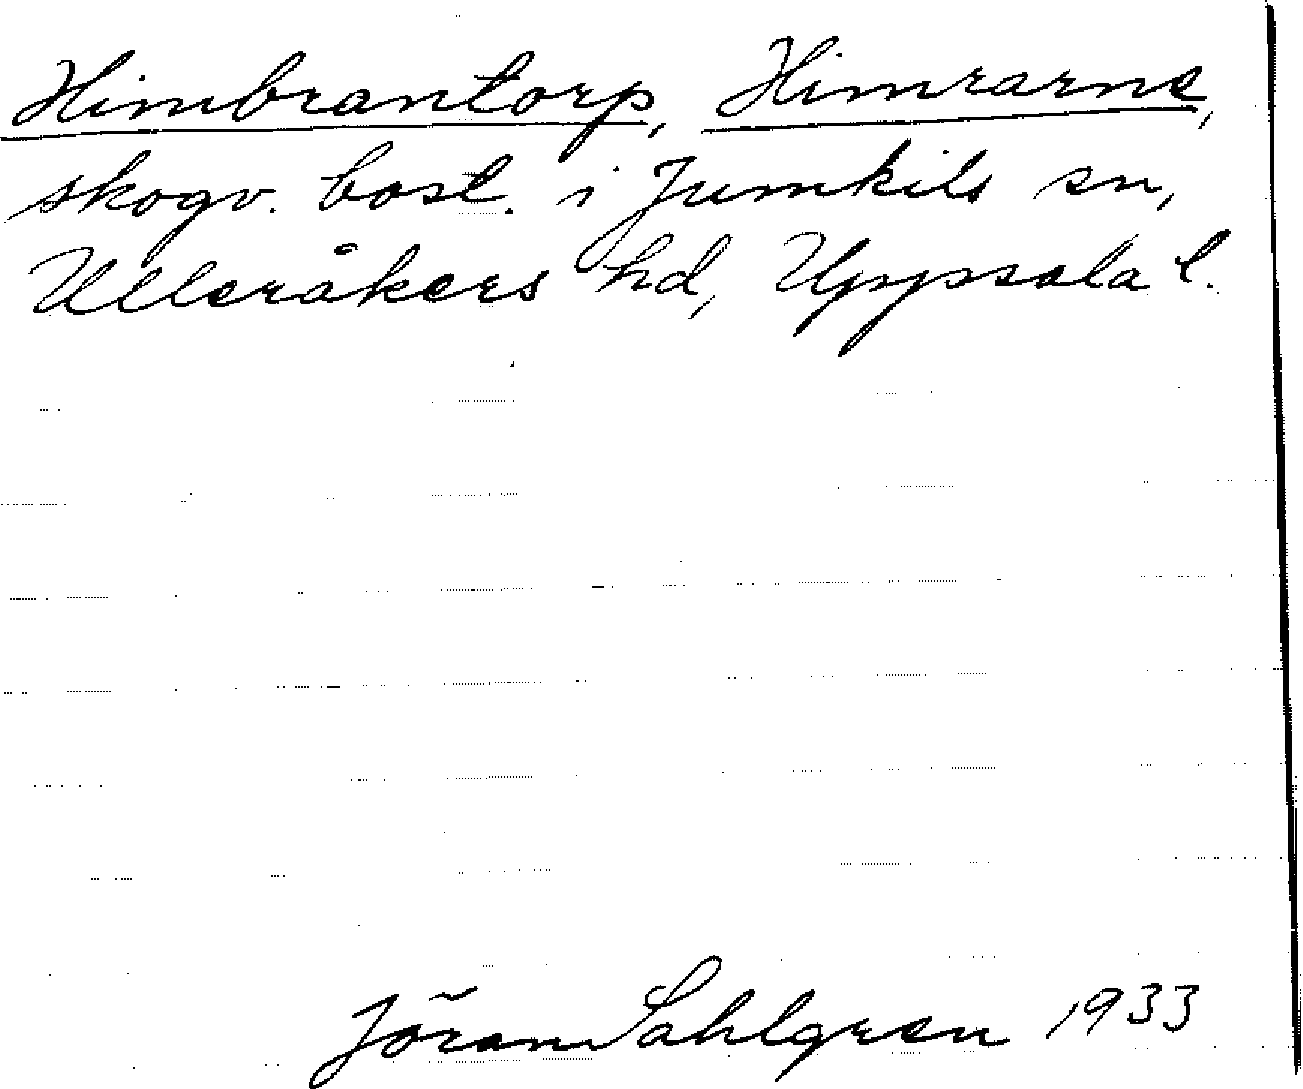 Himbrantorp, Himrarne,
skogv. bost. i Jumkils sn,
Ulleråkers hd, Uppsala l.
Jöran Sahlgren 1933